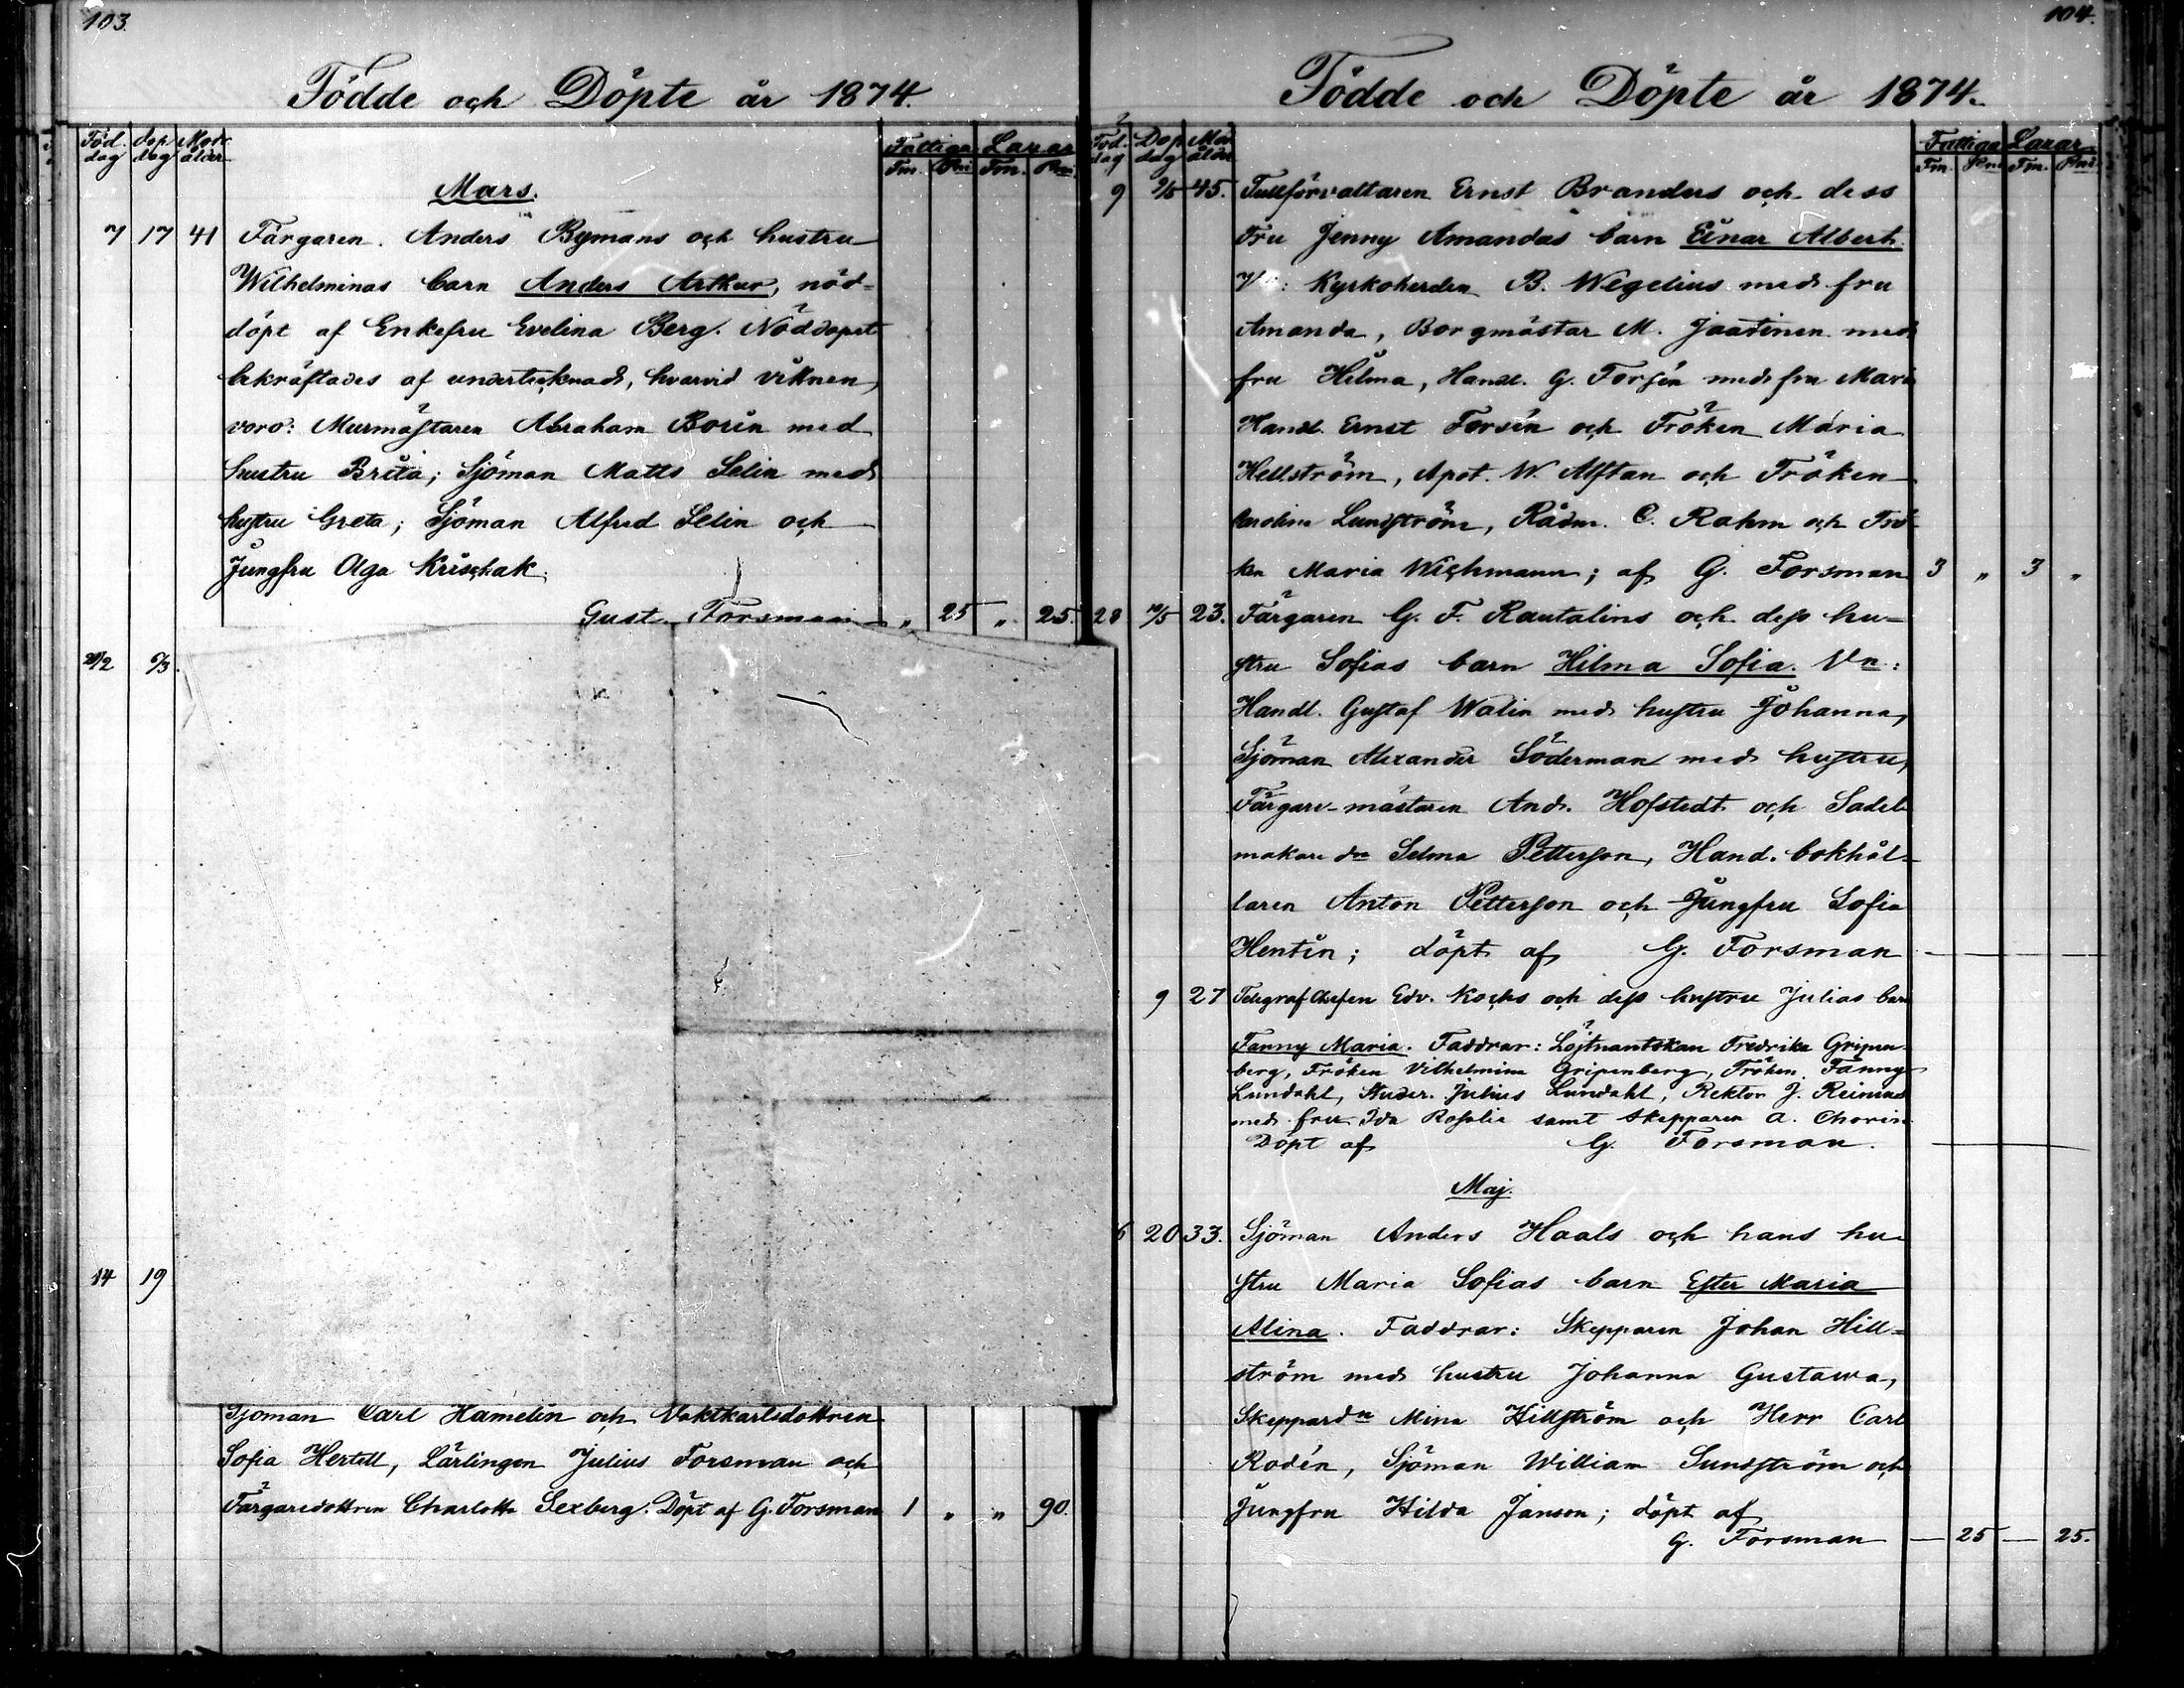 103.
Födde och Döpte år 1874.
Föd. dag Dop dag Mod. ålder Fattiga Lazar.
Fm. Pni Fm. Pni
Mars.
7 17 41 Färgaren Anders Bymans och hustru
Wilhelminas barn Anders Arthur, nöd-
döpt af Enkefru Evelina Berg. Nöddopet
bekräftades af undertecknad, hvarvid vittnen
voro: Murmästaren Abraham Borin med
hustru Brita; Sjöman Matts Selin med
hustru Greta; Sjöman Alfred Selin och
Jungfru Olga Krischak.
Gust. Forsman " 25 " 25.
6/3.
14 19
Sjöman Carl Hamelin och Vaktkarlsdottren
Sofia Hertell, Lärlingen Julius Forsman och
Färgaredottren Charlotta Sexberg. Döpt af G. Forsman 1 " " 90.
104.
Födde och Döpte år 1874.
Föd. dag Dop dag Mod. ålder Fattiga Lazar.
Fm. Pni Fm. Pni
9 9/5 45. Tullförvaltaren Ernst Branders och dess
Fru Jenny Amandas barn Einar Albert.
Kyrkoherden B. Wegelius med fru
Amanda, Borgmästar M. Jaatinen med
fru Hilma, Handl. G. Forsén med fru Maria
Handl. Ernst Forsén och Fröken Maria
Hellström, Apot. W. Alftan och Fröken
Carolina Lundström, Rådm. C. Rahm och Frö-
ken Maria Wichmann; af G. Forsman 3 " 3 "
28 23. Färgaren G. F. Rautalins och dess hu-
stru Sofias barn Hilma Sofia. Vn:
Handl. Gustaf Walin med hustru Johanna,
Sjöman Alexander Söderman med hustru,
Färgare-mästaren And. Hofstedt och Sadel
makare dn Selma Petterson, Hand. bokhål-
laren Anton Petterson och Jungfru Sofia
Hentin; döpt af G. Forsman
9 27 Telegraf Chefen Edv. Kochs och dess hustru Julias barn
Fanny Maria. Faddrar: Löjtnantskan Fredrika Gripen-
berg, Fröken Vilhelmina Gripenberg, Fröken Fanny
Lundahl, Studer. Julius Lundahl, Rektor J. Reinius
med fru Ida Rosalie samt Skepparen A. Chorin
Döpt af G. Forsman.
Maj.
6 20 33. Sjöman Anders Haals och hans hu-
stru Maria Sofias barn Ester Maria
Alina. Faddrar: Skepparen Johan Hill-
ström med hustru Johanna Gustawa,
Skeppardn Mina Hillström och Herr Carl
Rodén, Sjöman William Sundström och
Jungfru Hilda Janson; döpt af
G. Forsman — 25 — 25.